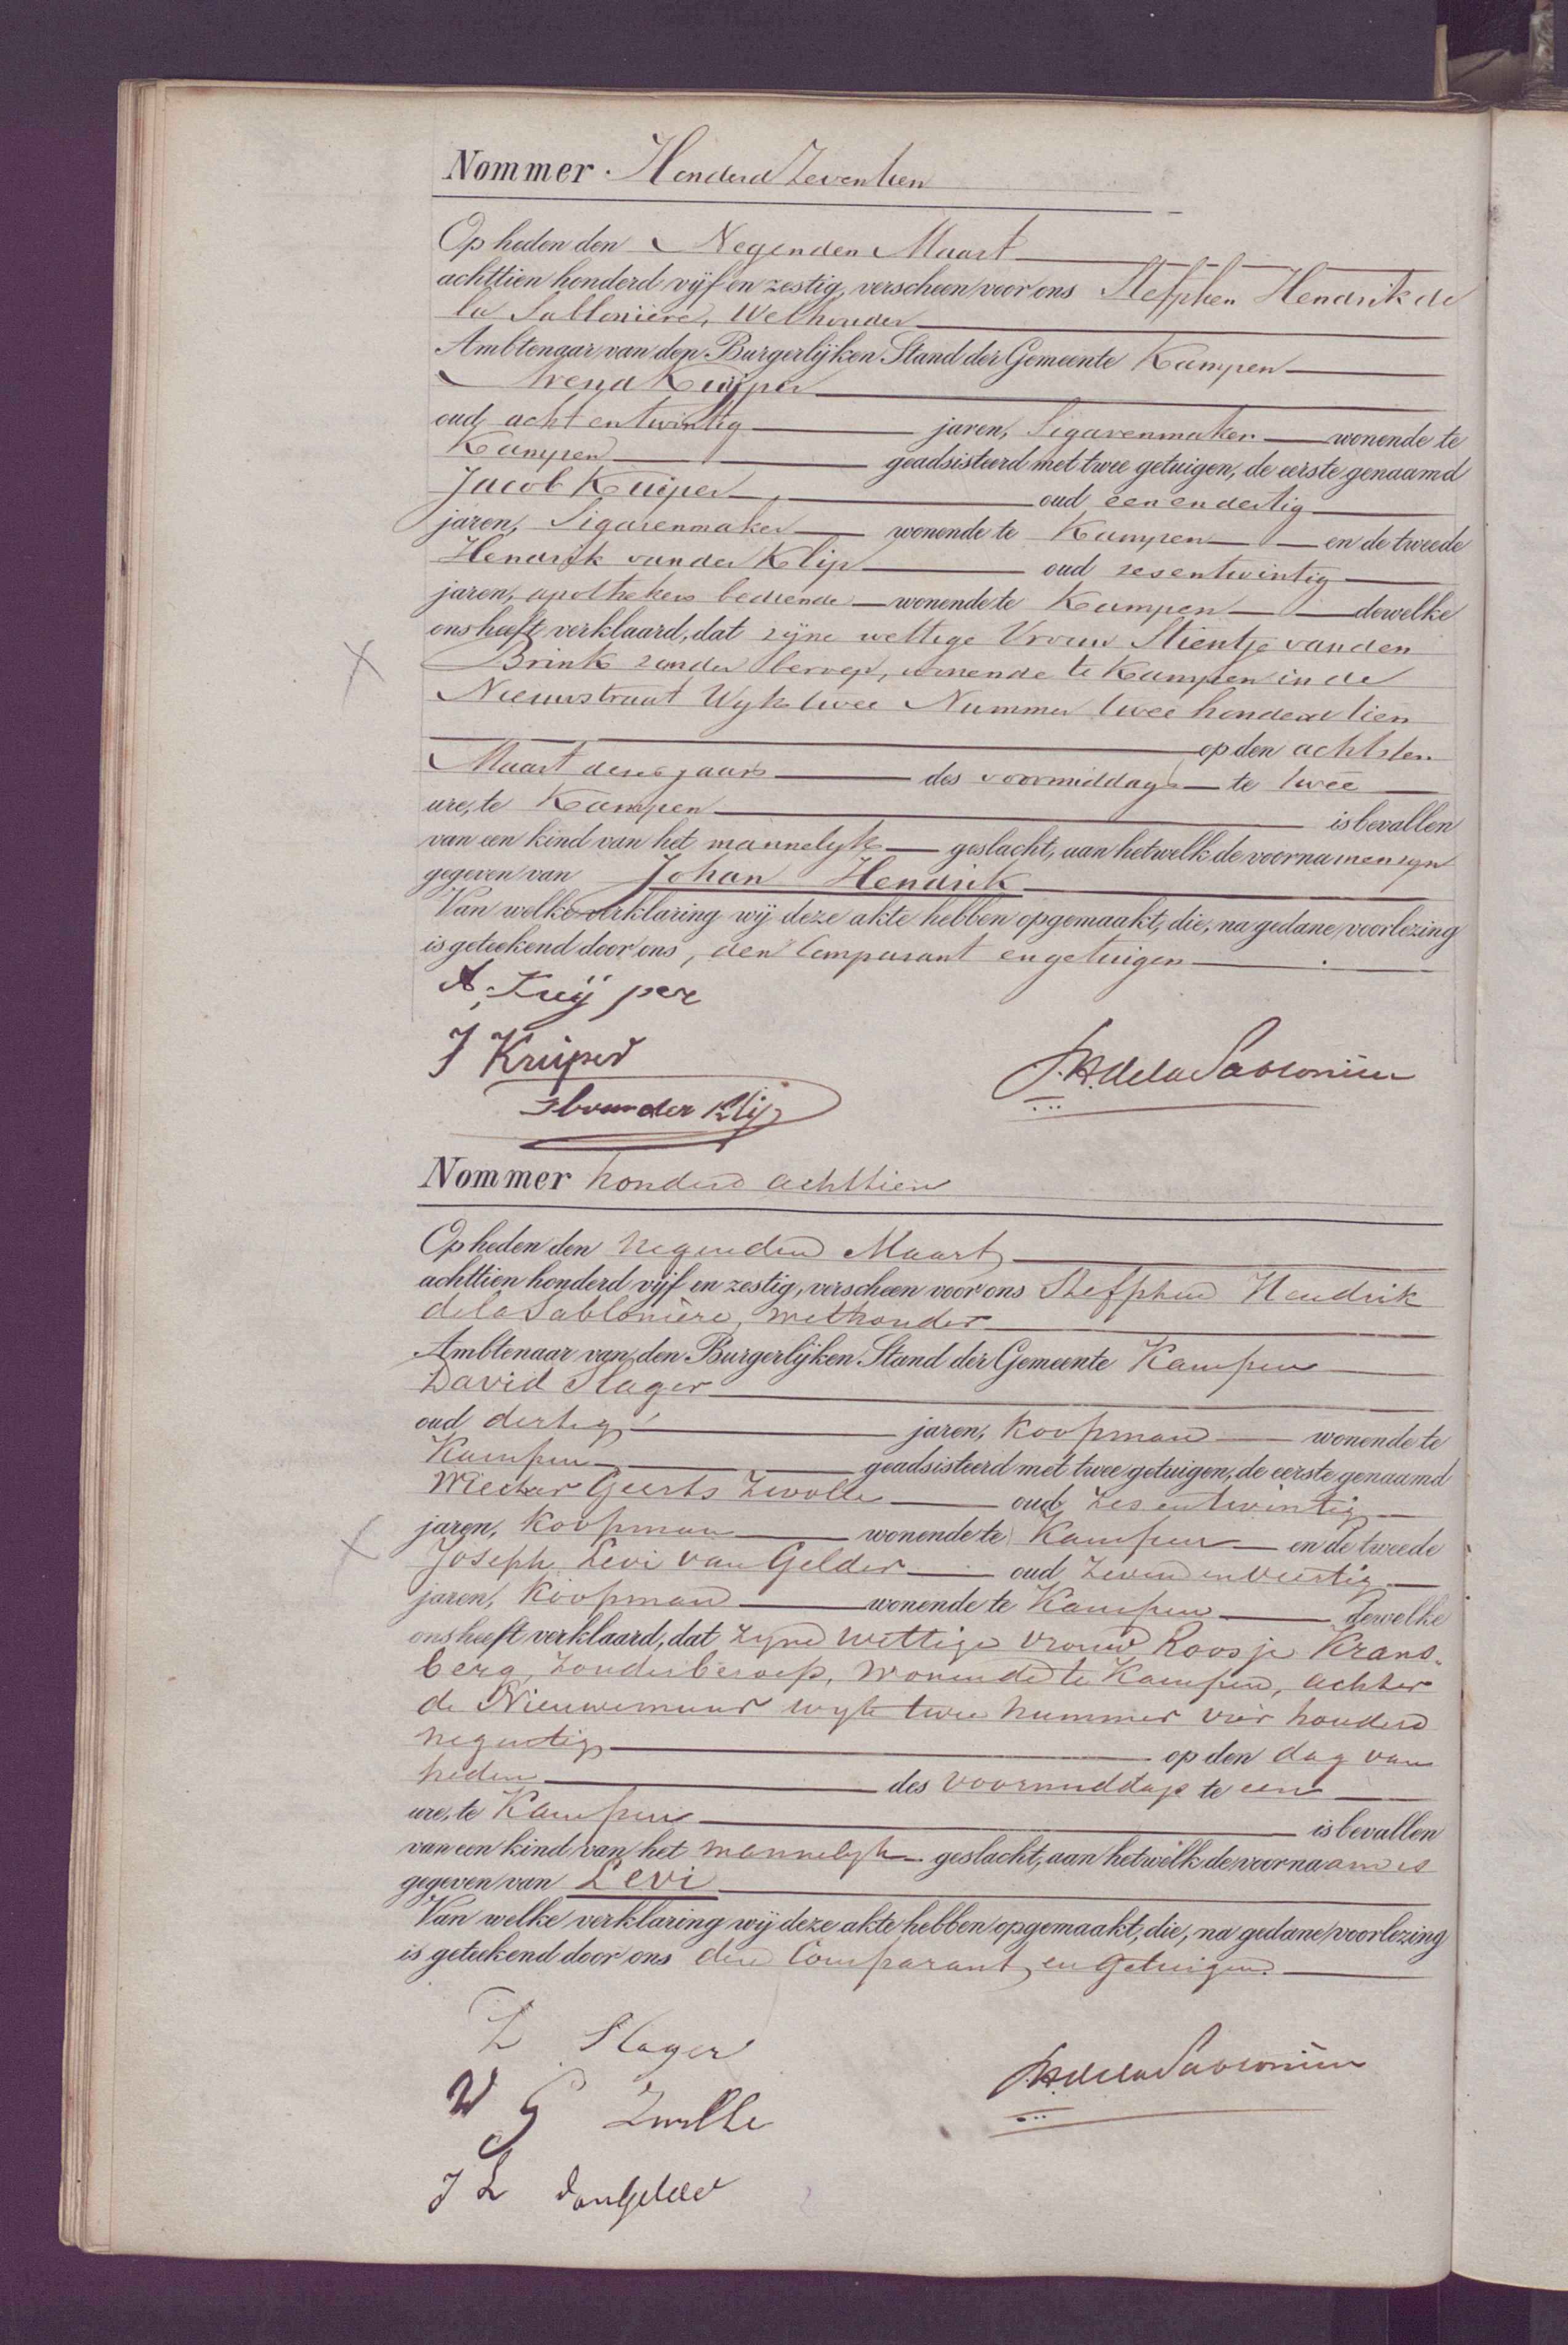 Nommer Honderd Zeventien
Op heden den Negenden Maart
achttien honderd vijf en zestig, verscheen voor ons Stefphen Hendrik de
la Sabloniere, Wethouder
Ambtenaar van den Burgerlijken Stand der Gemeente Kampen
Arend Kuijper
oud acht en twintig jaren, Sigarenmaker wonende te
Kampen geadsisteerd met twee getuigen, de eerste genaamd
Jacob Kuiper oud een en dertig
jaren, Sigarenmaker wonende te Kampen en de tweede
Hendrik van der Klip oud zesentwintig
jaren, apothekers bediende wonende te Kampen dewelke
ons heeft verklaard, dat zijne wettige Vrouw Stientje van den
Brink zonder beroep, wonende te Kampen in de
Nieuwstraat Wyk twee Nummer twee honderd tien
op den achtsten
Maart dezes jaars des voormiddags te twee
ure, te Kampen is bevallen
van een kind van het mannelyk geslacht, aan hetwelk de voornamen zyn
gegeven van Johan Hendrik
Van welke verklaring wij deze akte hebben opgemaakt, die, na gedane voorlezing
is geteekend door ons, den Comparant en getuigen
A. Kuijper
J Kuiper
H van der Klip
SH de la Sabloniere
Nommer honderd achttien
Op heden den negenden Maart
achttien honderd vijf en zestig, verscheen voor ons Stefphen Hendrik
de la Sablonière, wethouder
Ambtenaar van den Burgerlijken Stand der Gemeente Kampen
David Slager
oud dertig jaren, koopman wonende te
Kampen geadsisteerd met twee getuigen, de eerste genaamd
Geerts Zwolle oud zesentwintig
jaren, koopman wonende te Kampen en de tweede
Joseph Levi van Gelder oud zevenenveertig
jaren, koopman wonende te Kampen dewelke
ons heeft verklaard, dat zyne wettige vrouw Roosje Krans-
berg, zonder beroep, wonende te Kampen, achter
de Nieuwemuur wyk twee nummer vier honderd
negentig op den dag van
heden des voormiddags te een
ure, te Kampen is bevallen
van een kind van het mannelyk geslacht, aan hetwelk de voornaam is
gegeven van Levi
Van welke verklaring wij deze akte hebben opgemaakt, die, na gedane voorlezing
is geteekend door ons den Comparant en getuigen.
Slager
W G Zwolle
J L van Gelder
SH de la Sabloniere